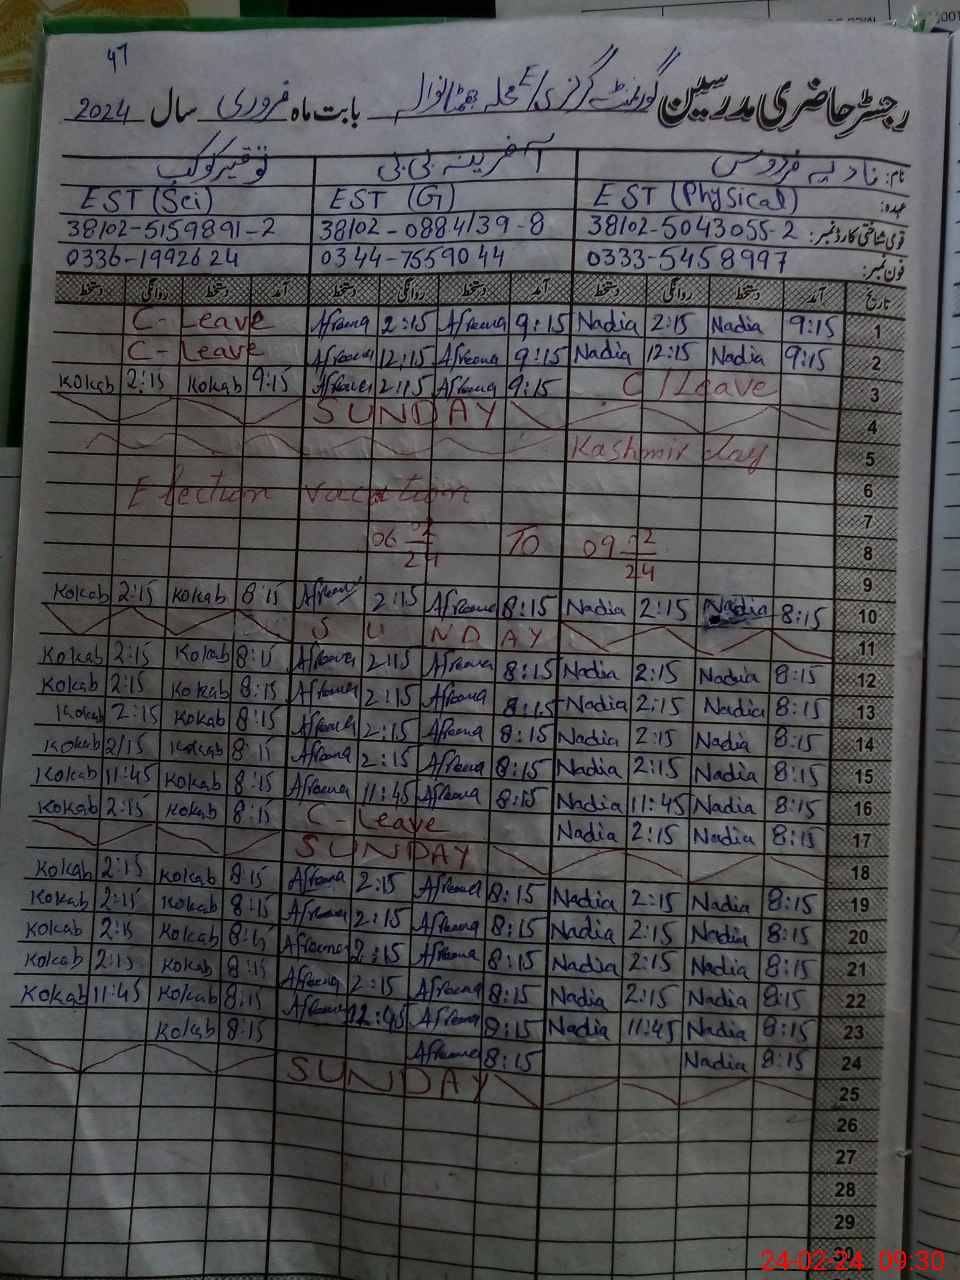 47
رجسٹر حاضری مدرسین گورنمنٹ گرلز E/ محلہ بابت ماہ فروری سال 2024
نام: نادیہ فردوس آفرینہ بی بی توقیر کوکب
عہدہ: EST (Physical) EST (G) EST (Sci)
قومی شناختی کارڈ نمبر: 38102-5043055-2 38102-0884139-8 38102-5159891-2
فون نمبر: 0333-5458997 0344-7559044 0336-1992624
تاریخ آمد دستخط روانگی دستخط آمد دستخط روانگی دستخط آمد دستخط روانگی دستخط
C-Leave Afreena 2:15 Afreena 9:15 Nadia 2:15 Nadia 9:15 1
C-Leave Afreena 12:15 Afreena 9:15 Nadia 12:15 Nadia 9:15 2
Kokab 2:15 Kokab 9:15 Afreena 2:15 Afreena 9:15 C/Leave 3
SUNDAY 4
Kashmir day 5
Election vacation 6
7
06 02/24 TO 09 02/24 8
9
Kokab 2:15 Kokab 8:15 Afreena 2:15 Afreena 8:15 Nadia 2:15 Nadia 8:15 10
SUNDAY 11
Kokab 2:15 Kokab 8:15 Afreena 2:15 Afreena 8:15 Nadia 2:15 Nadia 8:15 12
Kokab 2:15 Kokab 8:15 Afreena 2:15 Afreena 8:15 Nadia 2:15 Nadia 8:15 13
Kokab 2:15 Kokab 8:15 Afreena 2:15 Afreena 8:15 Nadia 2:15 Nadia 8:15 14
Kokab 2/15 Kokab 8:15 Afreena 2:15 Afreena 8:15 Nadia 2:15 Nadia 8:15 15
Kokab 11:45 Kokab 8:15 Afreena 11:45 Afreena 8:15 Nadia 11:45 Nadia 8:15 16
Kokab 2:15 Kokab 8:15 C-Leave Nadia 2:15 Nadia 8:15 17
SUNDAY 18
Kokab 2:15 Kokab 8:15 Afreena 2:15 Afreena 8:15 Nadia 2:15 Nadia 8:15 19
Kokab 2:15 Kokab 8:15 Afreena 2:15 Afreena 8:15 Nadia 2:15 Nadia 8:15 20
Kokab 2:15 Kokab 8:15 Afreena 2:15 Afreena 8:15 Nadia 2:15 Nadia 8:15 21
Kokab 2:15 Kokab 8:15 Afreena 2:15 Afreena 8:15 Nadia 2:15 Nadia 8:15 22
Kokab 11:45 Kokab 8:15 Afreena 12:45 Afreena 8:15 Nadia 11:45 Nadia 8:15 23
Kokab 8:15 Afreena 8:15 Nadia 8:15 24
SUNDAY 25
26
27
28
29
30
24-02-24 09:30